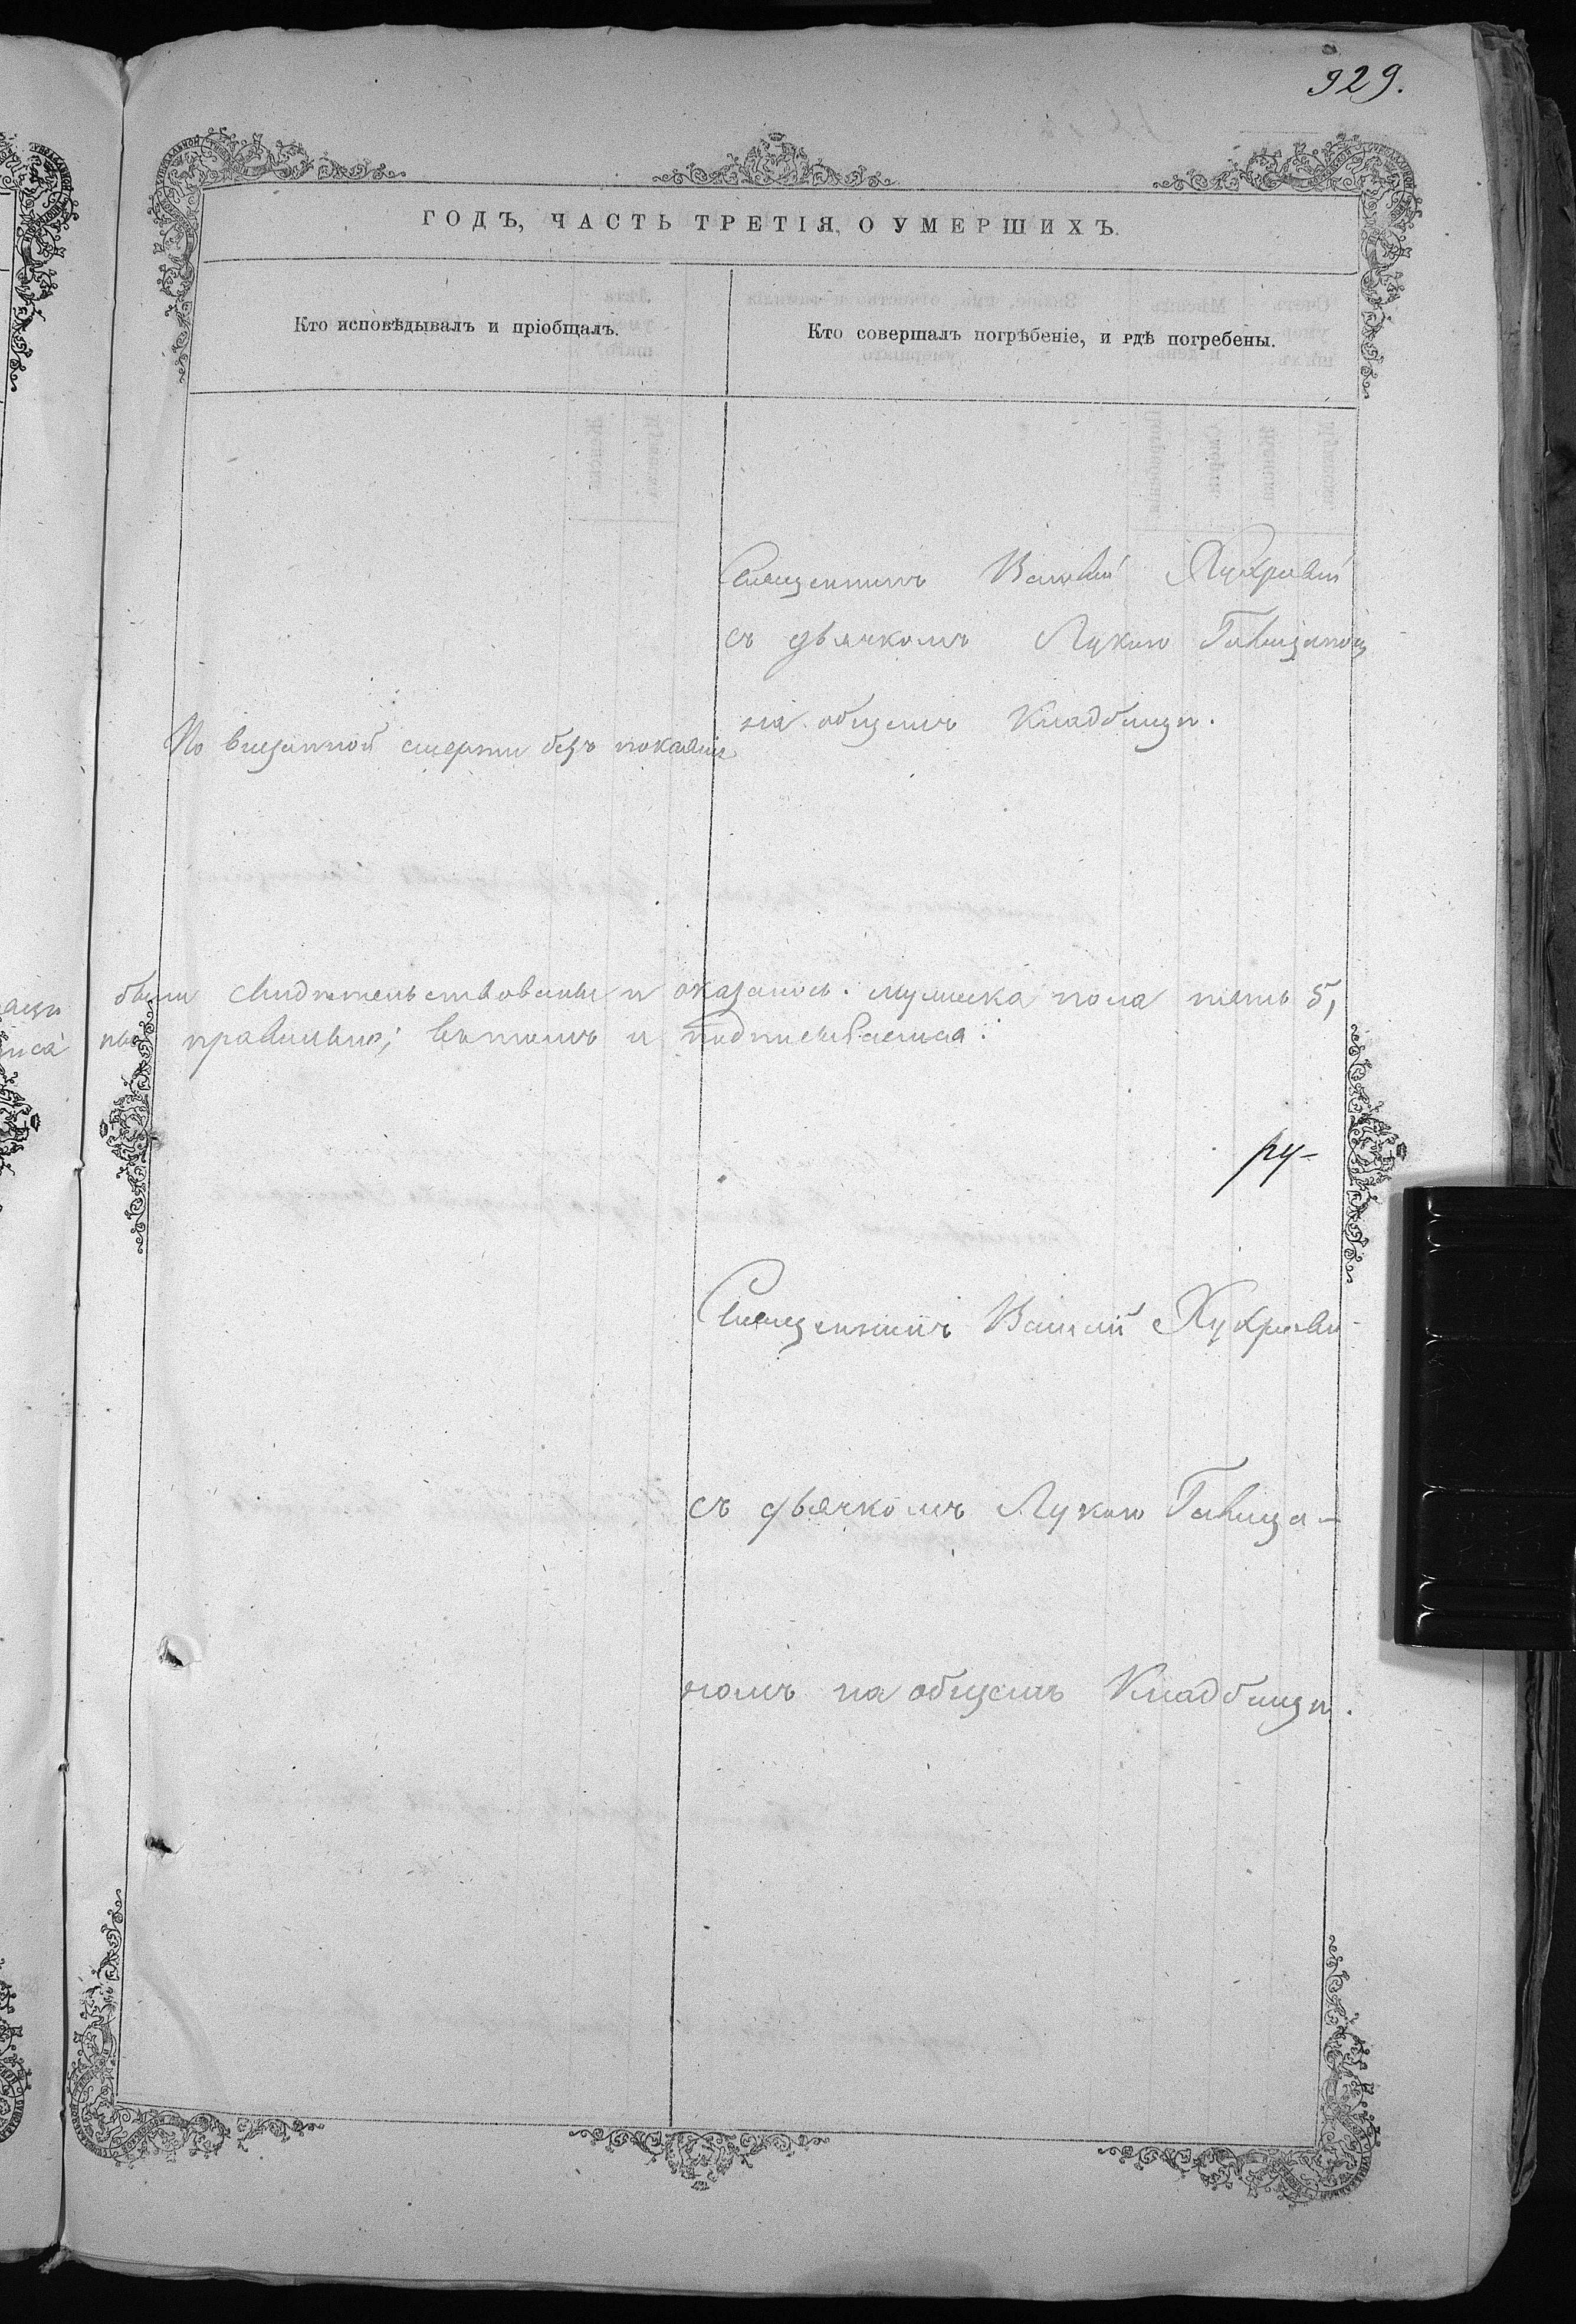 929.
ГОДЪ, ЧАСТЬ ТРЕТІЯ, О УМЕРШИХЪ.
Кто исповѣдывалъ и пріобщалъ.
Кто совершалъ погрѣбеніе, и гдѣ погребены.
Священникъ Василій
съ дьячкомъ Лукою
на общемъ Кладбищѣ.
По внезапной смерти безъ покаянія
были свидѣтельствованы и оказалось: мужеска пола пять 5,
правильно; въ томъ и подписываемся:
ру-
Священникъ Василій
съ дьячкомъ Лукою
номъ на общемъ Кладбищѣ.